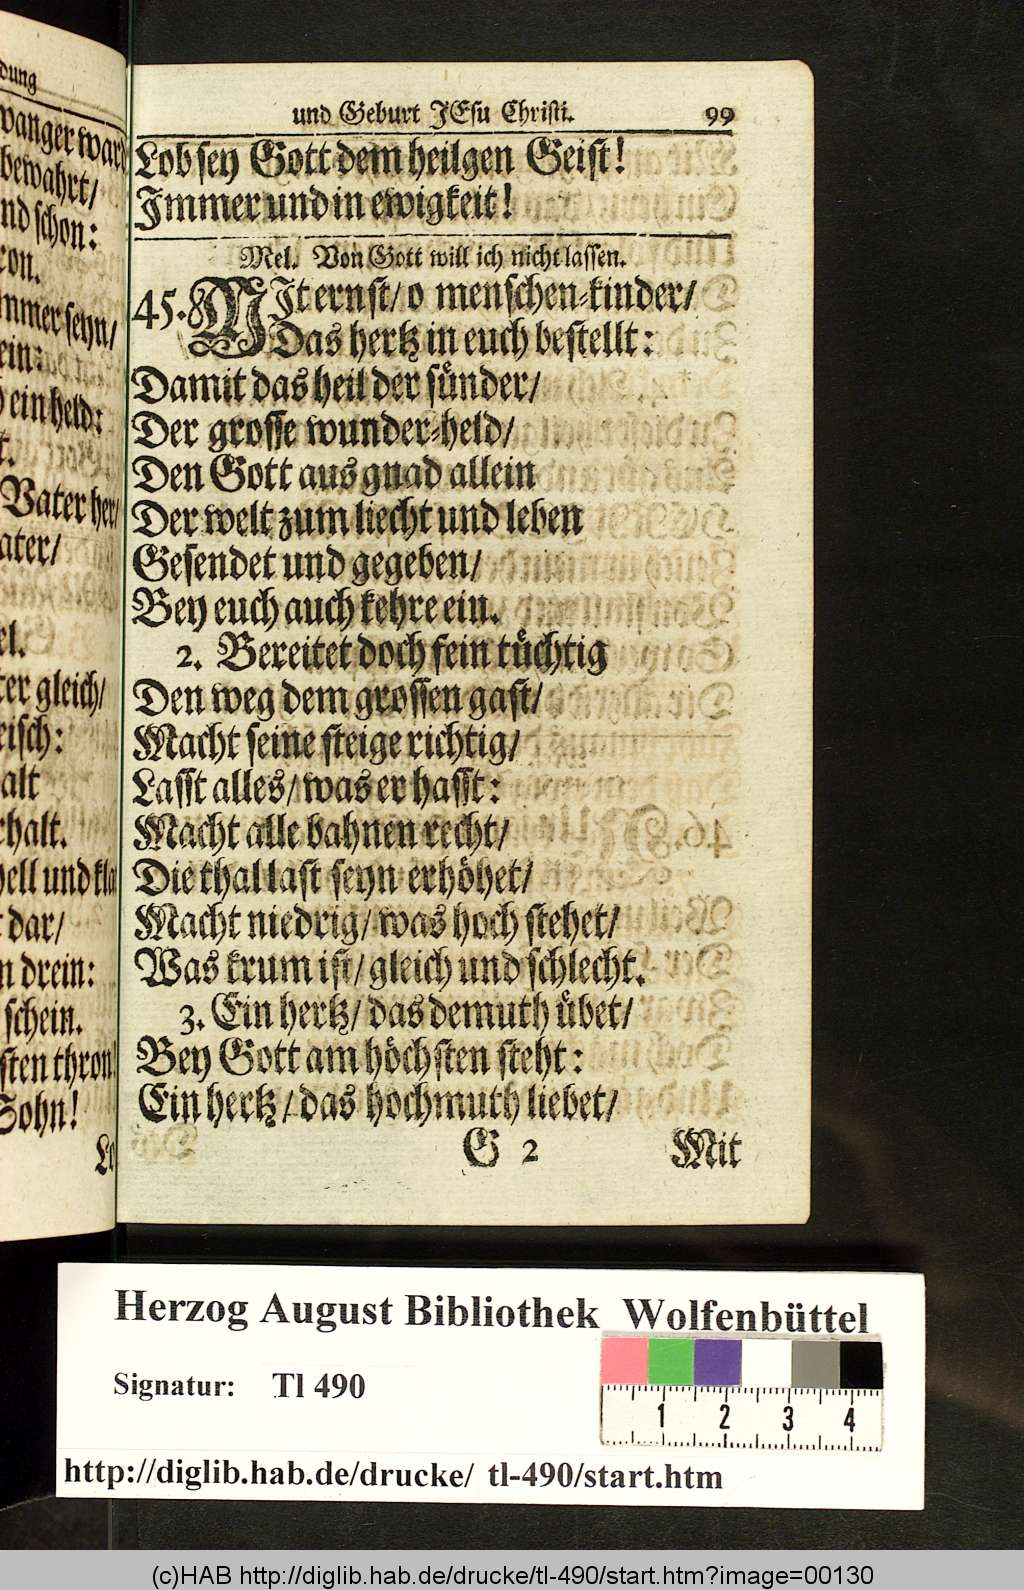 dung
wanger ward
bewahrt/
nd schon:
ron.
mmer seyn/
ein:
ein held:
t.
Vater her/
ater/
el.
ter gleich/
eisch:
alt
rhalt.
hell und kla
dar/
n drein:
schein.
sten thron!
Sohn!
Lo
und Geburt JEsu Christi. 99
Lob sey Gott dem heilgen Geist!
Immer und in ewigkeit!
Mel. Von Gott will ich nicht lassen.
45. MIt ernst/ o menschen-kinder/
Das hertz in euch bestellt:
Damit das heil der sünder/
Der grosse wunder-held/
Den Gott aus gnad allein
Der welt zum liecht und leben
Gesendet und gegeben/
Bey euch auch kehre ein.
2. Bereitet doch fein tüchtig
Den weg dem grossen gast/
Macht seine steige richtig/
Lasst alles/ was er hasst:
Macht alle bahnen recht/
Die thal last seyn erhöhet/
Macht niedrig/ was hoch stehet/
Was krum ist/ gleich und schlecht.
3. Ein hertz/ das demuth übet/
Bey Gott am höchsten steht:
Ein hertz/ das hochmuth liebet/
G 2 Mit
Herzog August Bibliothek Wolfenbüttel
Signatur: Tl 490
1 2 3 4
http://diglib.hab.de/drucke/ tl-490/start.htm
(c)HAB http://diglib.hab.de/drucke/tl-490/start.htm?image=00130